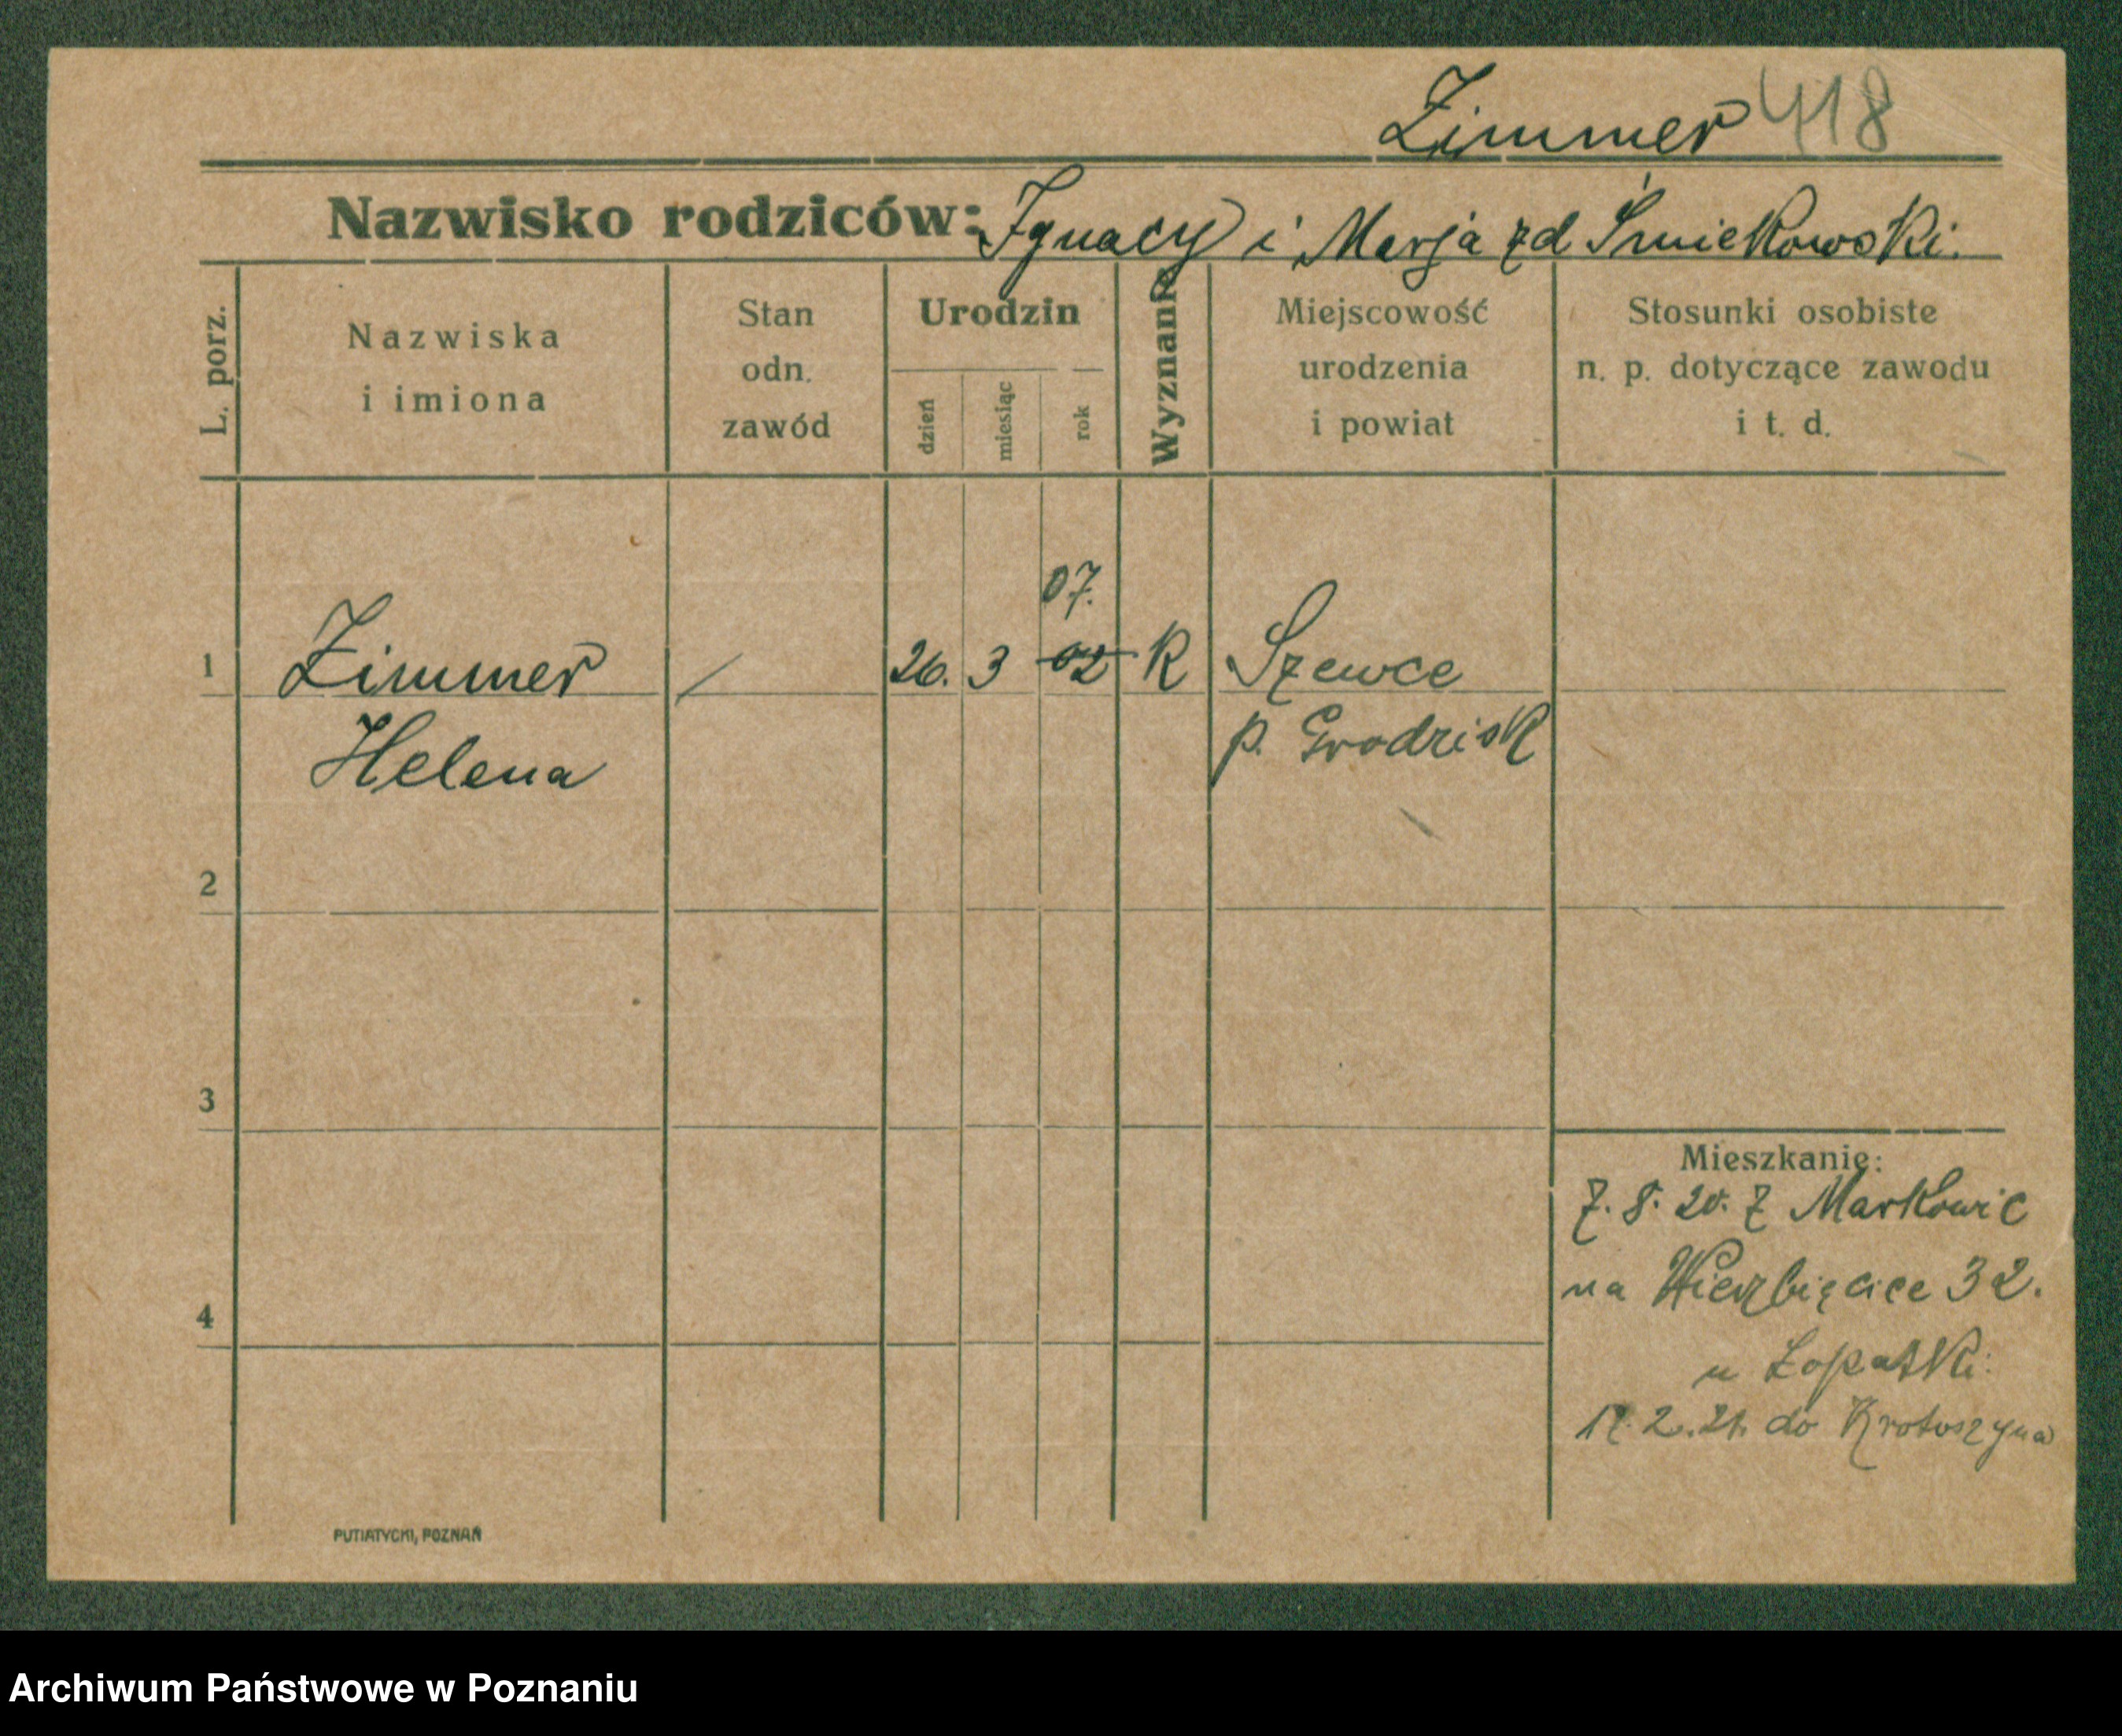 Zimmer 418
Nazwisko rodziców: Ignacy i Marja zd Śmiekowski.
L. porz.
Nazwiska
i imiona
Stan
odn.
zawód
Urodzin
dzień
miesiąc
rok
Wyznanie
Miejscowość
urodzenia
i powiat
Stosunki osobiste
n. p. dotyczące zawodu
i t. d.
07.
1 Zimmer / 26. 3 02 K Szewce
Helena p. Grodzisk
2
3
Mieszkanie:
7. 8. 20. Z Markowic
na Wierzbięcice 32.
4
u Łopatki:
17. 2. 21. do Krotoszyna
PUTIATYCKI, POZNAŃ
Archiwum Państwowe w Poznaniu